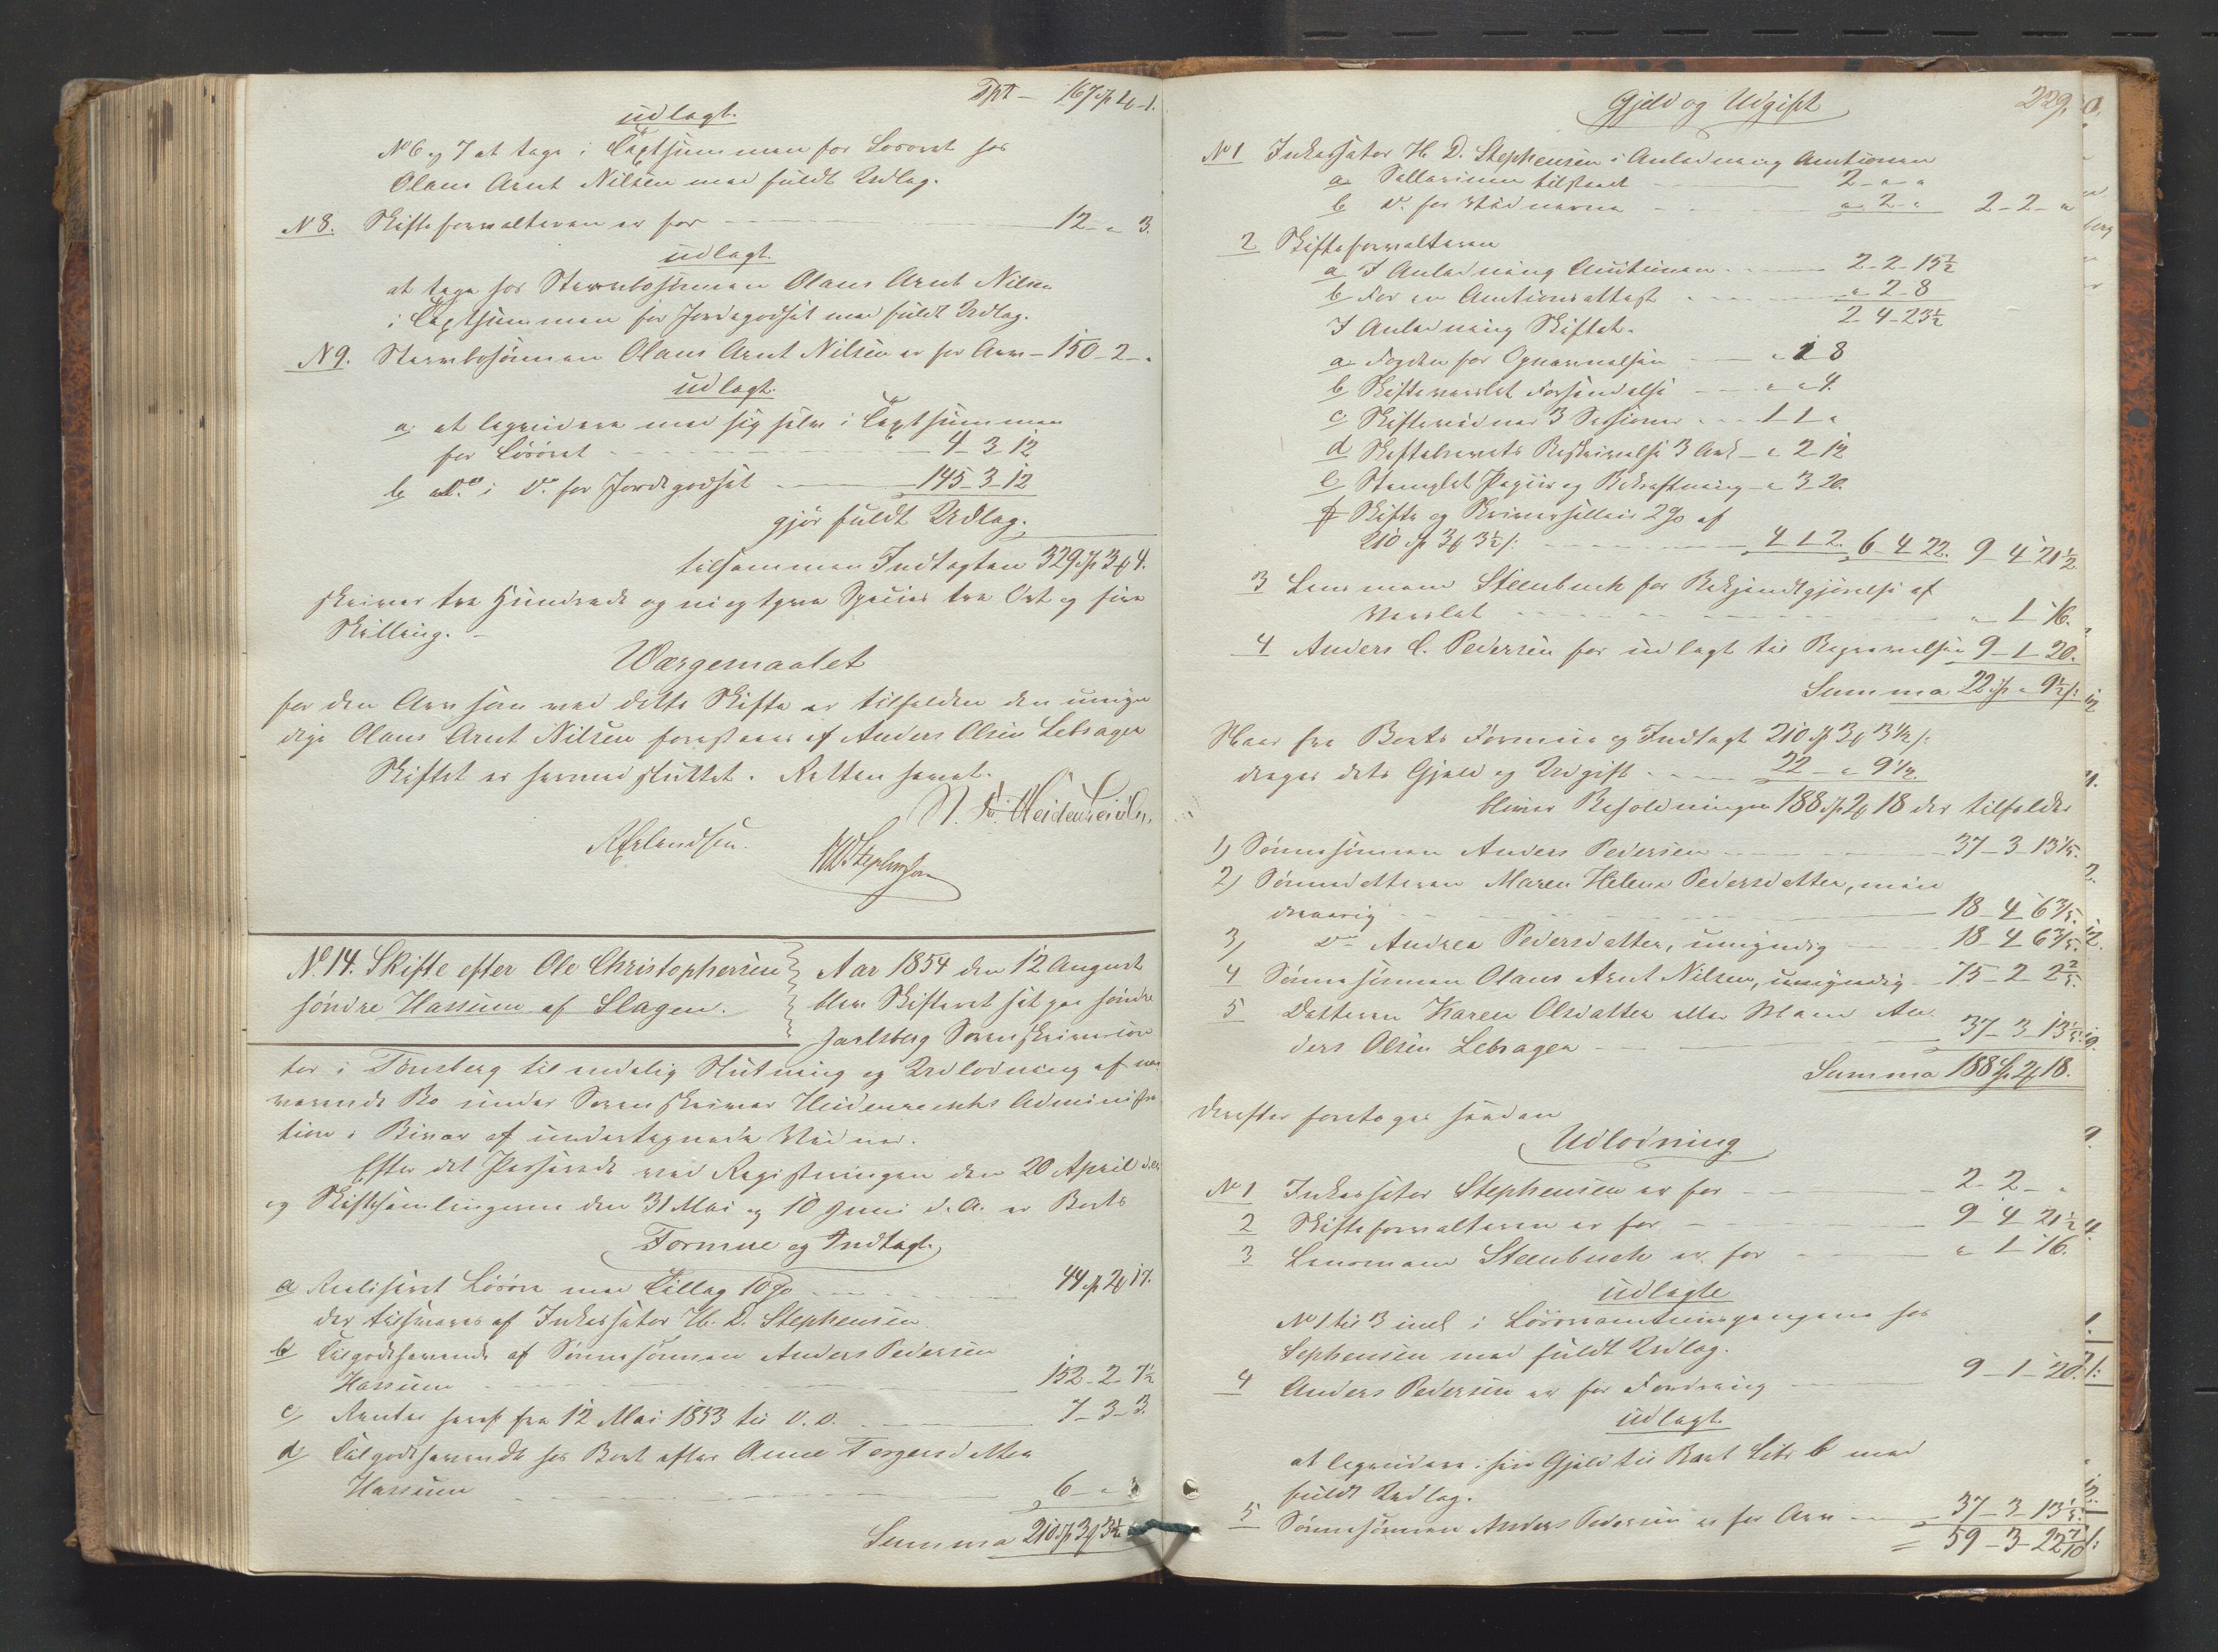 Tpt — 167 Sp 4 - 1.
udlagt.
No 6 og 7 at tage i Taxtsummen for Løsøret hos
Olaus Arnt Nilsen med fuldt Udlæg.
N 8. Skifteforvalteren er for — 12 - " 3.
udlagt.
at tage hos Stervbosønnen Olaus Arnt Nilsen
i Taxtsummen for Jordegodset med fuldt Udlæg.
N 9. Stervbosønnen Olaus Arnt Nilsen er for Arv — 150 - 2 - "
udlagt.
a, at liqvidere med sig selv i Taxtsummen
for Løsøret — 4 - 3 12
b, at do i do for Jordegodset — 145 - 3 - 12
gjør fuldt Udlæg.
tilsammen Indtægten 329 Sp 3 4.
skriver tre Hundrede og ni og tyve Species tre Ort og fire
Skilling. —
Værgemaalet
for den Arv som ved dette Skifte er tilfalden den umyn-
dige Olaus Arnt Nilsen forestaaes af Anders Olsen Lebsager
Skiftet er hermed sluttet. Retten hævet.
N. Fr. Heidenreich.
R Erlandsen. HD Stephensen
No 14. Skifte efter Ole Christophersen
søndre Hassum af Slagen.
Aar 1854 den 12 August
blev Skifteret sat paa søndre
Jarlsberg Sorenskriverkon-
tor i Tønsberg til endelig Slutning og Udlodning af nær-
værende Bo under Sorenskriver Heidenreichs Administra-
tion i Bivær af undertegnede Vidner.
Efter det Passerede ved Registreringen den 20 April d. A.
og Skiftesamlingerne den 31 Mai og 10 Juni d. A. er Boets
Formue og Indtægt.
a Realiseret Løsøre med Tillæg 10 % — 44 Sp 2 17.
der tilsvares af Inkassator H. D. Stephensen.
b Tilgodehavende af Sønnesønnen Anders Pedersen
Hassum — 152 - 2 - 7½
c, Renter heraf fra 12 Mai 1853 til d. d. — 7 - 3 - 3.
d Tilgodehavende hos Boet efter Anne Torgersdatter
Hassum — 6 - "
Summa 210 Sp 3 3½
229.
Gjeld og Udgift
No 1 Inkassator H. D. Stephensen i Anledning Auctionen
a Sallarium tilstaaet — 2 - " - "
b do for Vidnerne — " 2 - " 2 - 2 - "
2 Skifteforvalteren
a I Anledning Auctionen — 2 - 2 - 15½
b For en Auctionsattest — " 2 - 8
2 4 - 23½
I Anledning Skiftet.
a Fogden for Opnævnelsen — " 1 8
b Skiftevarslet Forsendelse — " " 4.
c Skiftevidner 3 Sessioner — 1 1 "
d Skiftebrevets Beskrivelse 3 Ark — " 2 12
e Stemplet Papiir og Bekræftning — " 3 20.
f Skifte og Skriversallair 2 % af
210 Sp 3 3½ — 4 1 2. 6 4 22. 9 4 21½
3 Lensmann Steenbuch for Bekjendtgjørelse af
Varslet — " 1 - 16.
4 Anders C. Pedersen for udlagt til Begravelsen 9 - 1 - 20.
Summa 22 Sp " 9½
Naar fra Boets Formue og Indtægt 210 Sp 3 3½
drages dets Gjeld og Udgift — 22 - " 9½.
bliver Beholdningen 188 Sp 2 18 der tilfalder
1) Sønnesønnen Anders Pedersen — 37 - 3 - 13⅕.
2) Sønnedatteren Maren Helene Pedersdatter, min-
dreaarig — 18 - 4 6⅗.
3) do Andrea Pedersdatter, umyndig — 18 - 4 6⅗.
4 Sønnesønnen Olaus Arnt Nilsen, umyndig — 75 - 2 2⅖.
5 Datteren Karen Olsdatter eller Mand An-
ders Olsen Lebsager — 37 - 3 - 13⅕.
Summa 188 Sp 2 18.
Derefter foretoges saadan
Udlodning
No 1 Inkassator Stephensen er for — 2 - 2 - "
2 Skifteforvalteren er for — 9 - 4 21½
3 Lensmann Steenbuch er for — " 1 - 16.
udlagte
No 1 til 3 incl i Løsøreauctionspengene hos
Sephensen med fuldt Udlæg.
4 Anders Pedersen er for Fordring — 9 - 1 - 20.
udlagt.
at liqvidere i sin Gjeld til Boet Litr b med
fuldt Udlæg.
5 Sønnesønnen Anders Pedersen er for Arv — 37 - 3 - 13⅕.
59 - 3 - 22 7/10